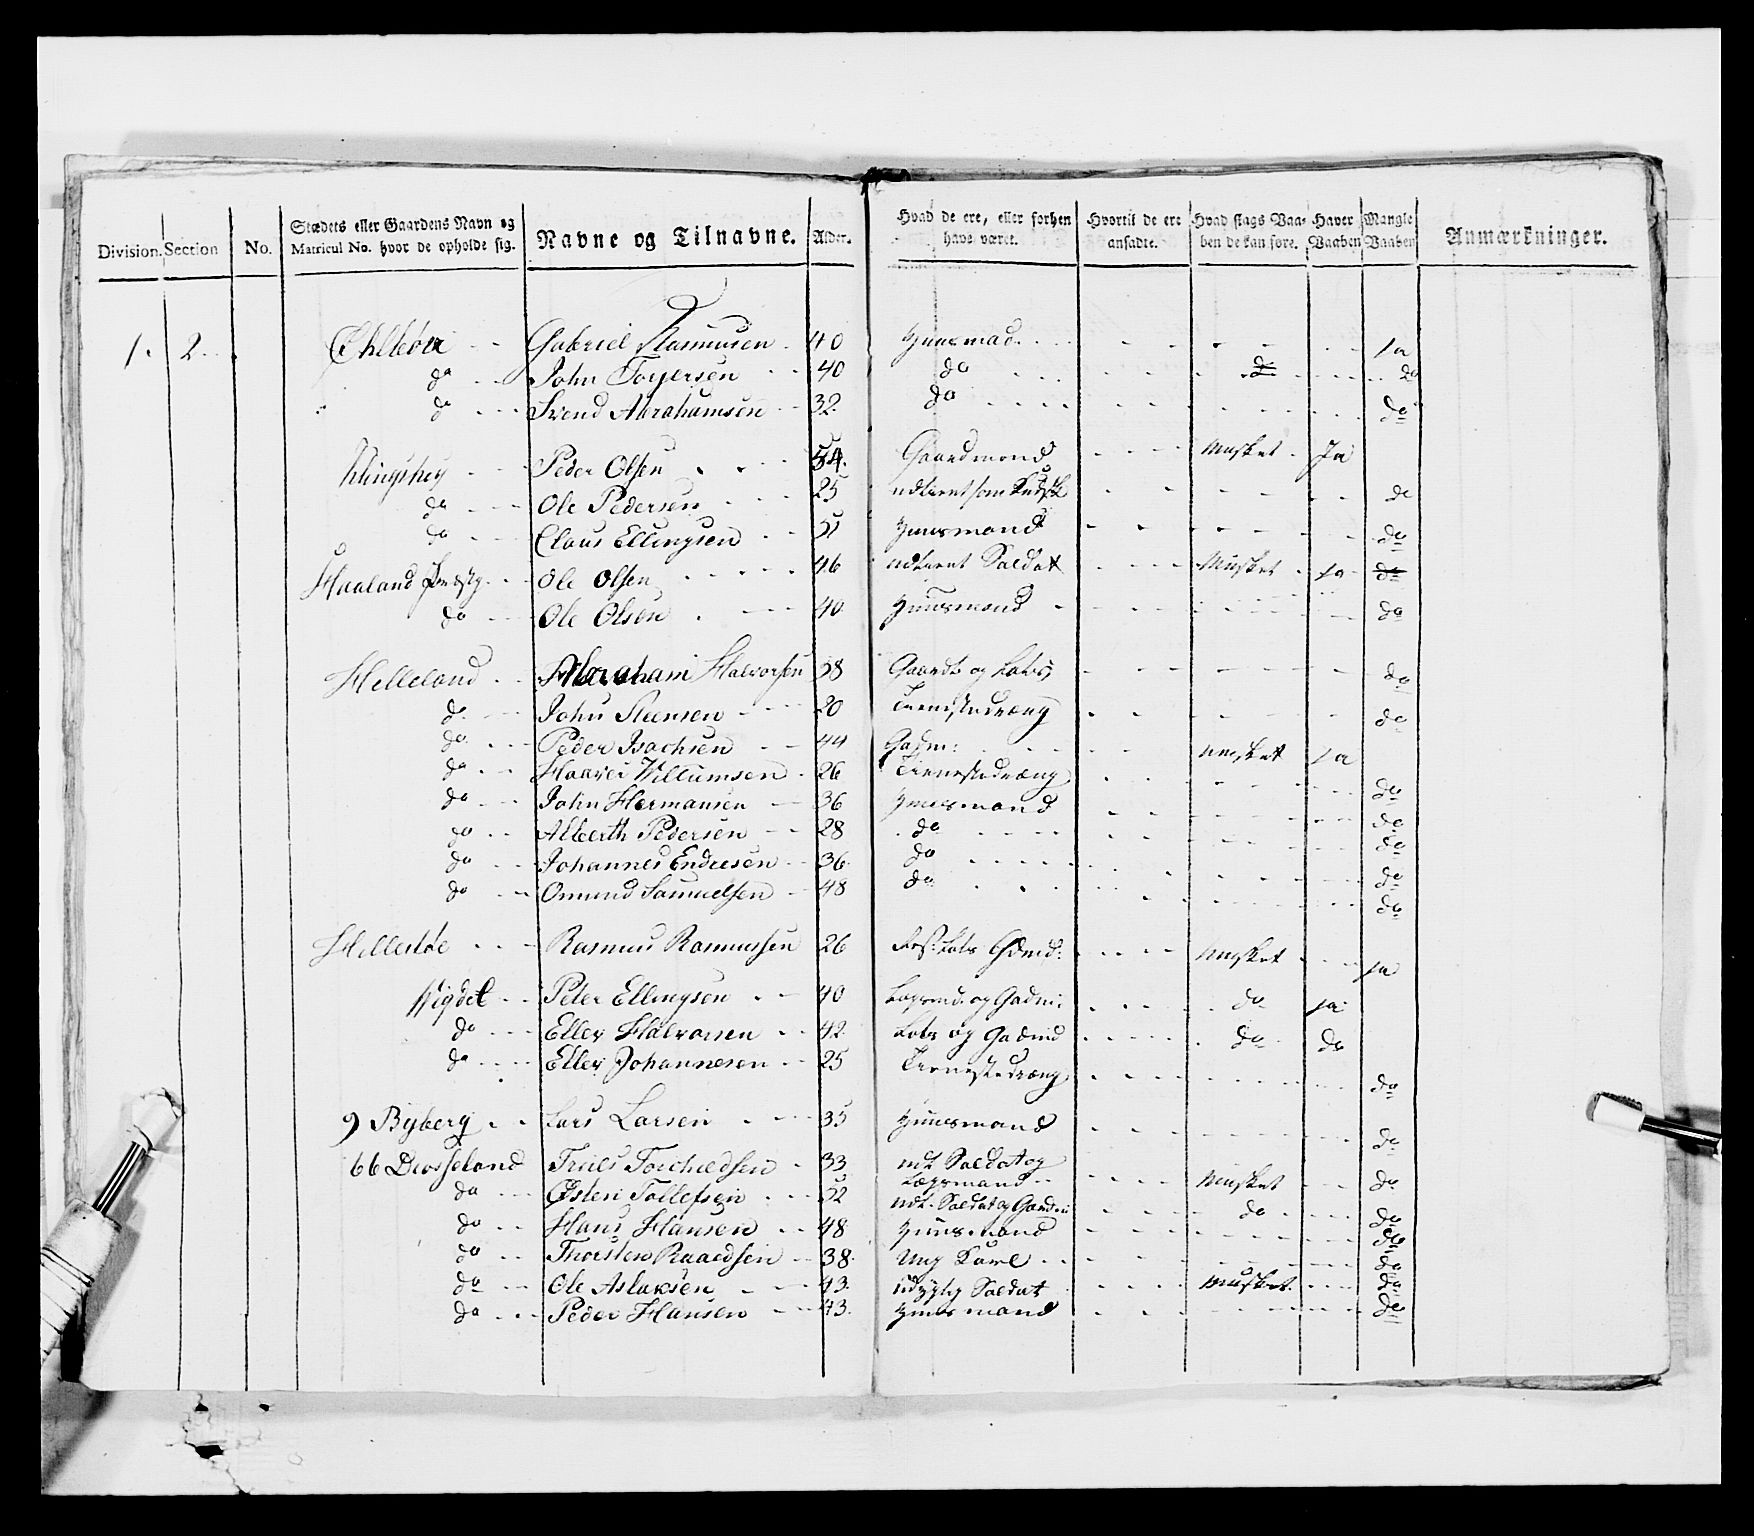 Division. Section No. Stædets eller Gaardens Navn og Matricul No. hvor de opholde sig. Navne og Tilnavne. Alder. Hvad de ere, eller forhen have været. Hvortil de ere ansadte. Hvad slags Vaaben de kan føre. Haver Vaaben Mangle Vaaben Anmærkninger.
1. 2. Gabriel Rasmusen 40 Huusmad Ja
do John Torjersen 40 do do do
do Svend Abrahamsen 32 do do
Peder Olsen 54. Gaardmand Musket Ja
do Ole Pedersen 25 udtient som do
do Claus Ellingsen 51 Huusmand do
Haaland Præstg. Ole Olsen 46 udtient Soldat Musket Ja do
do Ole Olsen 40 Huusmand do
Helleland Abraham Halvorsen 58 Gaardm og Lods do
do John Steensen 20 Tienistedreng do
do Peder Isachsen 44 Gadm: Musket Ja
do Haaver Villumsen 26 Tienistedreng do
do John Hermansen 36 Huusmand do
do Alberth Pedersen 28 do do
do Johannes Endresen 36 do do
do Omund Samuelsen 48 do do
Hellestøe Rasmus Rasmussen 26 Lods Gdmd: Musket Ja
Vigdel Peter Ellingsen 40 og Gadm: do Ja
do Ellev Halvorsen 42 Lods og Gadmd do do
do Ellev Johannesen 25 Tienistedreng do
9 Byberg Lars Larsen 35 Huusmand do
66 Troels Torchildsen 33 udt Soldat og Lægsmand Musket do
do Østen Tollefsen 52 udt. Soldat og Gaardm do do
do Hans Hansen 48 Huusmand do
do Thorsten Raardsen 38. Ung Karl do
do Ole Aslaksen 43. Soldat Musket. do
do Peder Hansen 43. Huusmand do